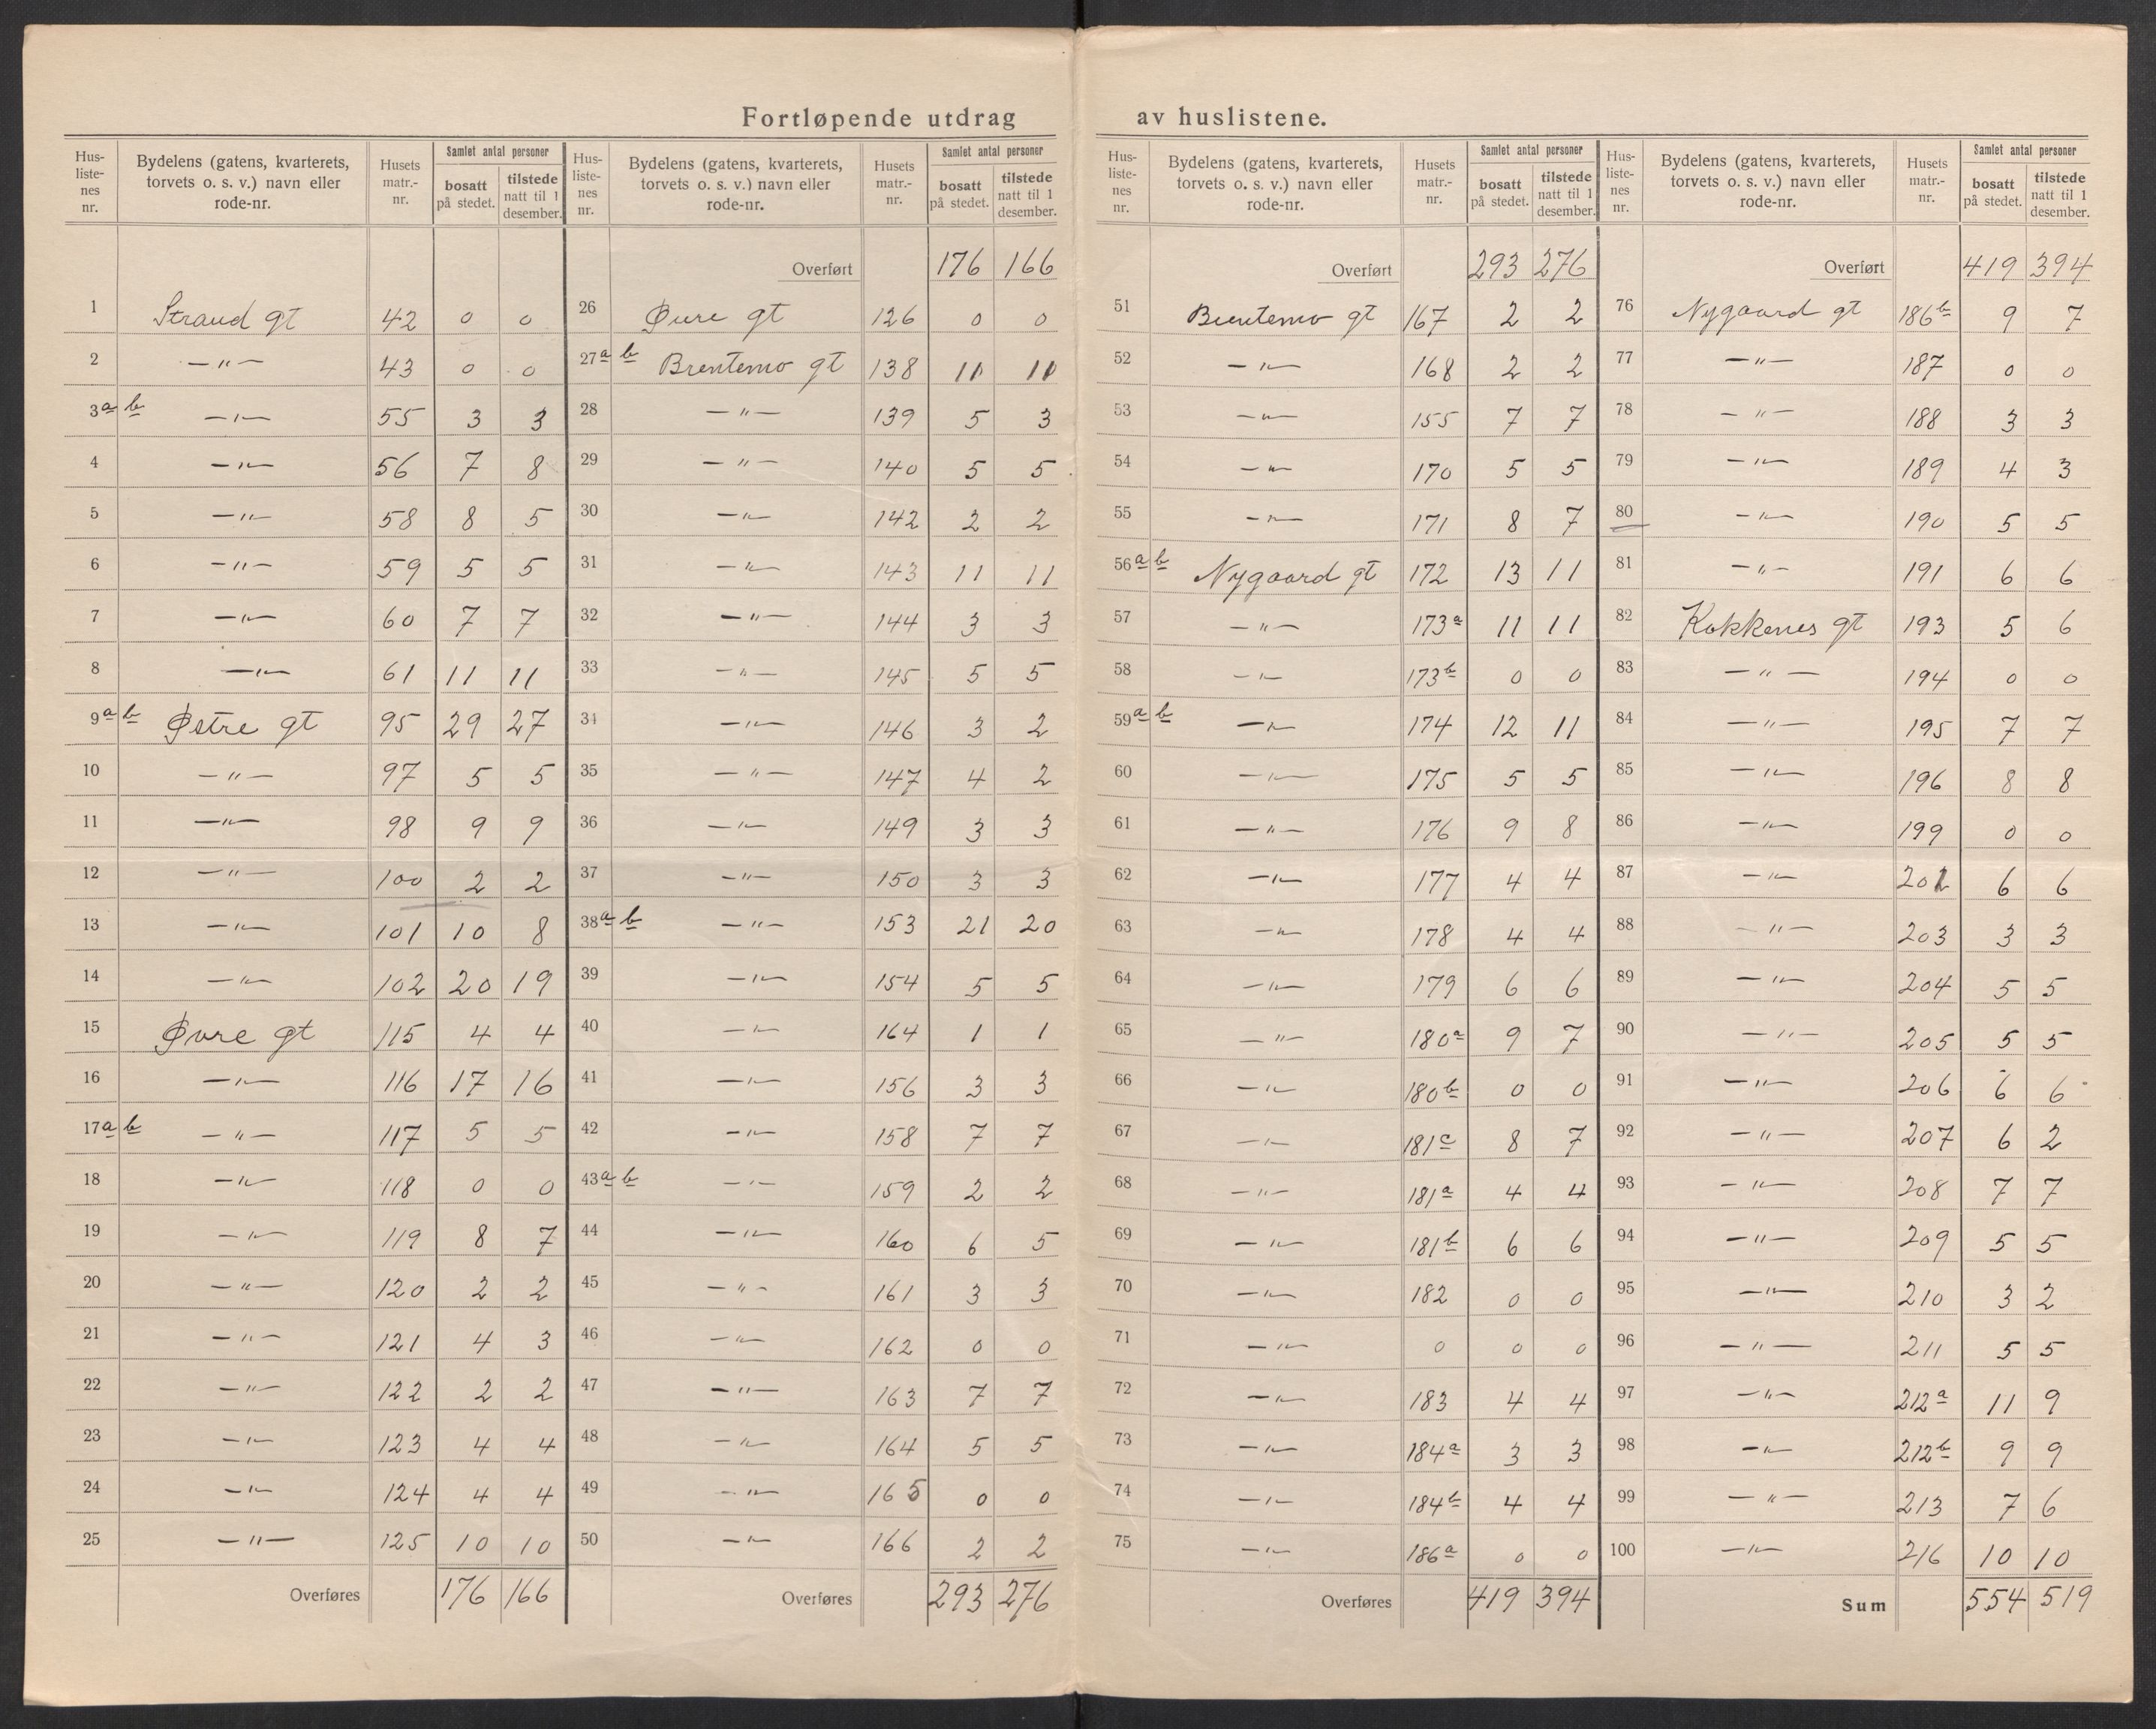 Fortløpende utdrag av huslistene.
Hus-liste-nes nr. | Bydelens (gatens, kvarterets, torvets o. s. v.) navn eller rode-nr. | Husets matr.-nr. | Samlet antal personer | bosatt på stedet. | tilstede natt til 1 desember.
1 Strand gt 42 0 0
2 —"— 43 0 0
3 a b —"— 55 3 3
4 —"— 56 7 8
5 —"— 58 8 5
6 —"— 59 5 5
7 —"— 60 7 7
8 —"— 61 11 11
9 a b Østre gt 95 29 27
10 —"— 97 5 5
11 —"— 98 9 9
12 —"— 100 2 2
13 —"— 101 10 8
14 —"— 102 20 19
15 Øvre gt 115 4 4
16 —"— 116 17 16
17 a b —"— 117 5 5
18 —"— 118 0 0
19 —"— 119 8 7
20 —"— 120 2 2
21 —"— 121 4 3
22 —"— 122 2 2
23 —"— 123 4 4
24 —"— 124 4 4
25 —"— 125 10 10
Overføres 176 166
Hus-liste-nes nr. | Bydelens (gatens, kvarterets, torvets o. s. v.) navn eller rode-nr. | Husets matr.-nr. | Samlet antal personer | bosatt på stedet. | tilstede natt til 1 desember.
Overført 176 166
26 Øvre gt 126 0 0
27 a b Brentemo gt 138 11 11
28 —"— 139 5 3
29 —"— 140 5 5
30 —"— 142 2 2
31 —"— 143 11 11
32 —"— 144 3 3
33 —"— 145 5 5
34 —"— 146 3 2
35 —"— 147 4 2
36 —"— 149 3 3
37 —"— 150 3 3
38 a b —"— 153 21 20
39 —"— 154 5 5
40 —"— 164 1 1
41 —"— 156 3 3
42 —"— 158 7 7
43 a b —"— 159 2 2
44 —"— 160 6 5
45 —"— 161 3 3
46 —"— 162 0 0
47 —"— 163 7 7
48 —"— 164 5 5
49 —"— 165 0 0
50 —"— 166 2 2
Overføres 293 276
Hus-liste-nes nr. | Bydelens (gatens, kvarterets, torvets o. s. v.) navn eller rode-nr. | Husets matr.-nr. | Samlet antal personer | bosatt på stedet. | tilstede natt til 1 desember.
Overført 293 276
51 Brentemo gt 167 2 2
52 —"— 168 2 2
53 —"— 155 7 7
54 —"— 170 5 5
55 —"— 171 8 7
56 a b Nygaard gt 172 13 11
57 —"— 173a 11 11
58 —"— 173b 0 0
59 a b —"— 174 12 11
60 —"— 175 5 5
61 —"— 176 9 8
62 —"— 177 4 4
63 —"— 178 4 4
64 —"— 179 6 6
65 —"— 180a 9 7
66 —"— 180b 0 0
67 —"— 181c 8 7
68 —"— 181a 4 4
69 —"— 181b 6 6
70 —"— 182 0 0
71 —"— 0 0 0
72 —"— 183 4 4
73 —"— 184a 3 3
74 —"— 184b 4 4
75 —"— 186a 0 0
Overføres 419 394
Hus-liste-nes nr. | Bydelens (gatens, kvarterets, torvets o. s. v.) navn eller rode-nr. | Husets matr.-nr. | Samlet antal personer | bosatt på stedet. | tilstede natt til 1 desember.
Overført 419 394
76 Nygaard gt 186b 9 7
77 —"— 187 0 0
78 —"— 188 3 3
79 —"— 189 4 3
80 —"— 190 5 5
81 —"— 191 6 6
82 Kokkenes gt 193 5 6
83 —"— 194 0 0
84 —"— 195 7 7
85 —"— 196 8 8
86 —"— 199 0 0
87 —"— 6 6
88 —"— 203 3 3
89 —"— 204 5 5
90 —"— 205 5 5
91 —"— 206 6 6
92 —"— 207 6 2
93 —"— 208 7 7
94 —"— 209 5 5
95 —"— 210 3 2
96 —"— 211 5 5
97 —"— 212a 11 9
98 —"— 212b 9 9
99 —"— 213 7 6
100 —"— 216 10 10
Sum 554 519